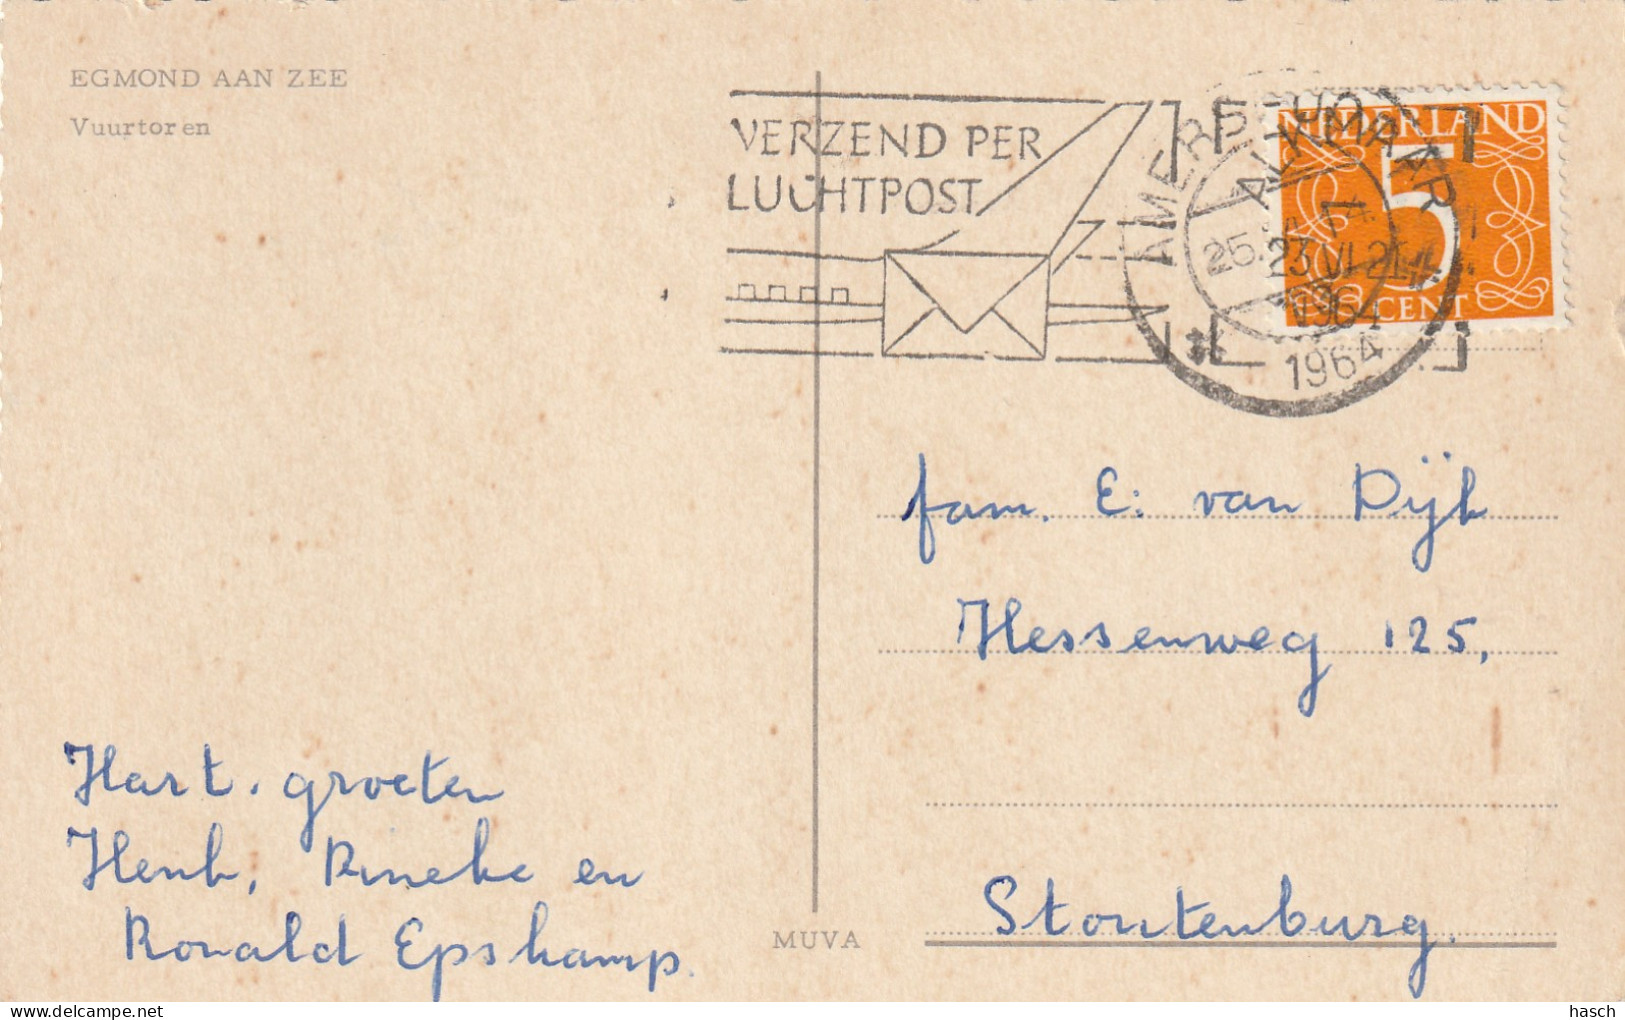 EGMOND AAN ZEE
Vuurtoren
VERZEND PER
LUCHTPOST
AMERSFOORT
ALKMAAR
23 VI 21
1964
1964
NEDERLAND
5
CENT
fam. E. van Dijk
Hessenweg 125,
Stoutenburg.
Hart. groeten
Henk, Rineke en
Ronald Epskamp.
MUVA
hasch
delcampe.net